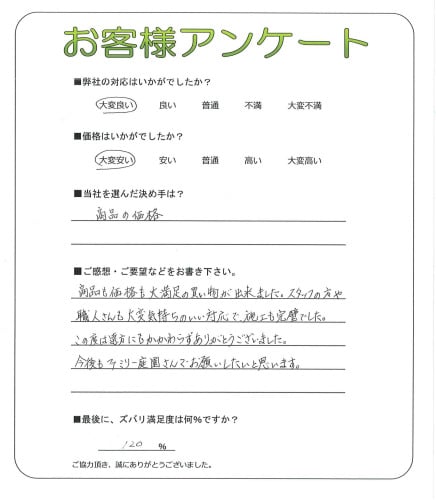 お客様アンケート
■弊社の対応はいかがでしたか?
大変良い 良い 普通 不満 大変不満
■価格はいかがでしたか?
大変安い 安い 普通 高い 大変高い
■当社を選んだ決め手は?
商品の価格
■ご感想・ご要望などをお書き下さい。
商品も価格も大満足の買い物が出来ました。スタッフの方や
職人さんも大変気持ちのいい対応で、施工も完璧でした。
この度は遠方にもかかわらずありがとうございました。
今後もファミリー庭園さんでお願いしたいと思います。
■最後に、ズバリ満足度は何%ですか?
120 %
ご協力頂き、誠にありがとうございました。